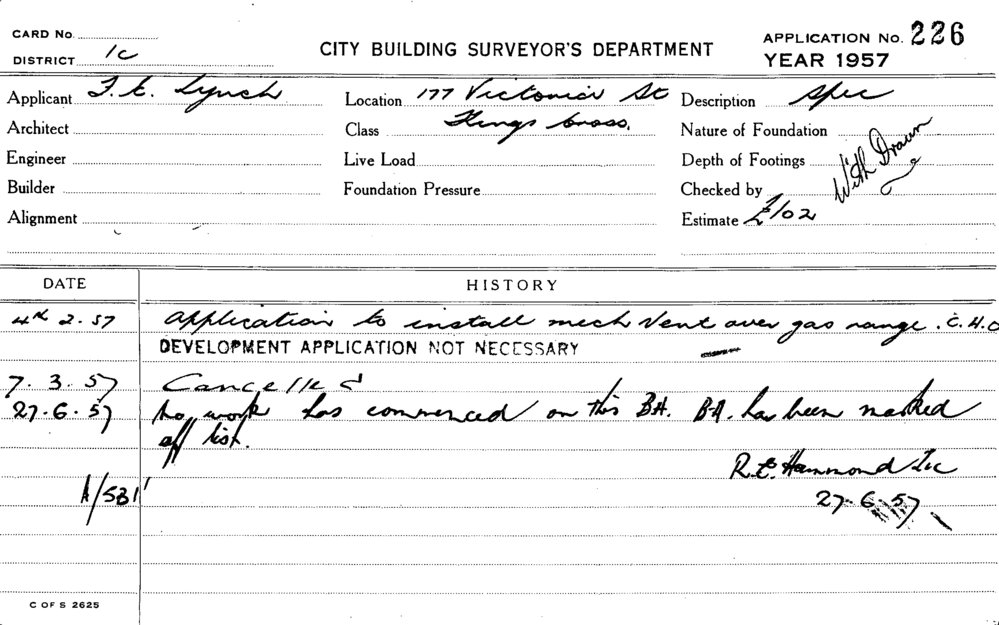 CARD No.
DISTRICT 1c
CITY BUILDING SURVEYOR'S DEPARTMENT
APPLICATION No. 226
YEAR 1957
Applicant J. E. Lynch
Location 177 Victoria St
Description Spec
Architect
Class Kings Cross.
Nature of Foundation
Engineer
Live Load
Depth of Footings
With Drawn
Builder
Foundation Pressure
Checked by
Alignment
Estimate £102
DATE
HISTORY
4th 2. 57 application to install mech Vent over gas range. C.H.O
DEVELOPMENT APPLICATION NOT NECESSARY
7. 3. 57 Cancelled
27.6.57 No work has commenced on this BA. B.A. has been marked
off list.
R.E. Hammond
A/581
27.6.57
C OF S 2625